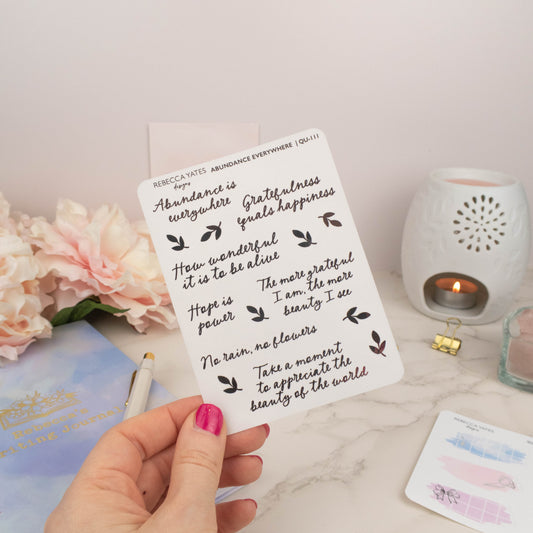 REBECCA YATES
designs
ABUNDANCE EVERYWHERE | QU-111
Abundance is
everywhere
Gratefulness
equals happiness
How wonderful
it is to be alive
Hope is
power
The more grateful
I am, the more
beauty I see
No rain, no flowers
Take a moment
to appreciate the
beauty of the world
REBECCA YATES
designs